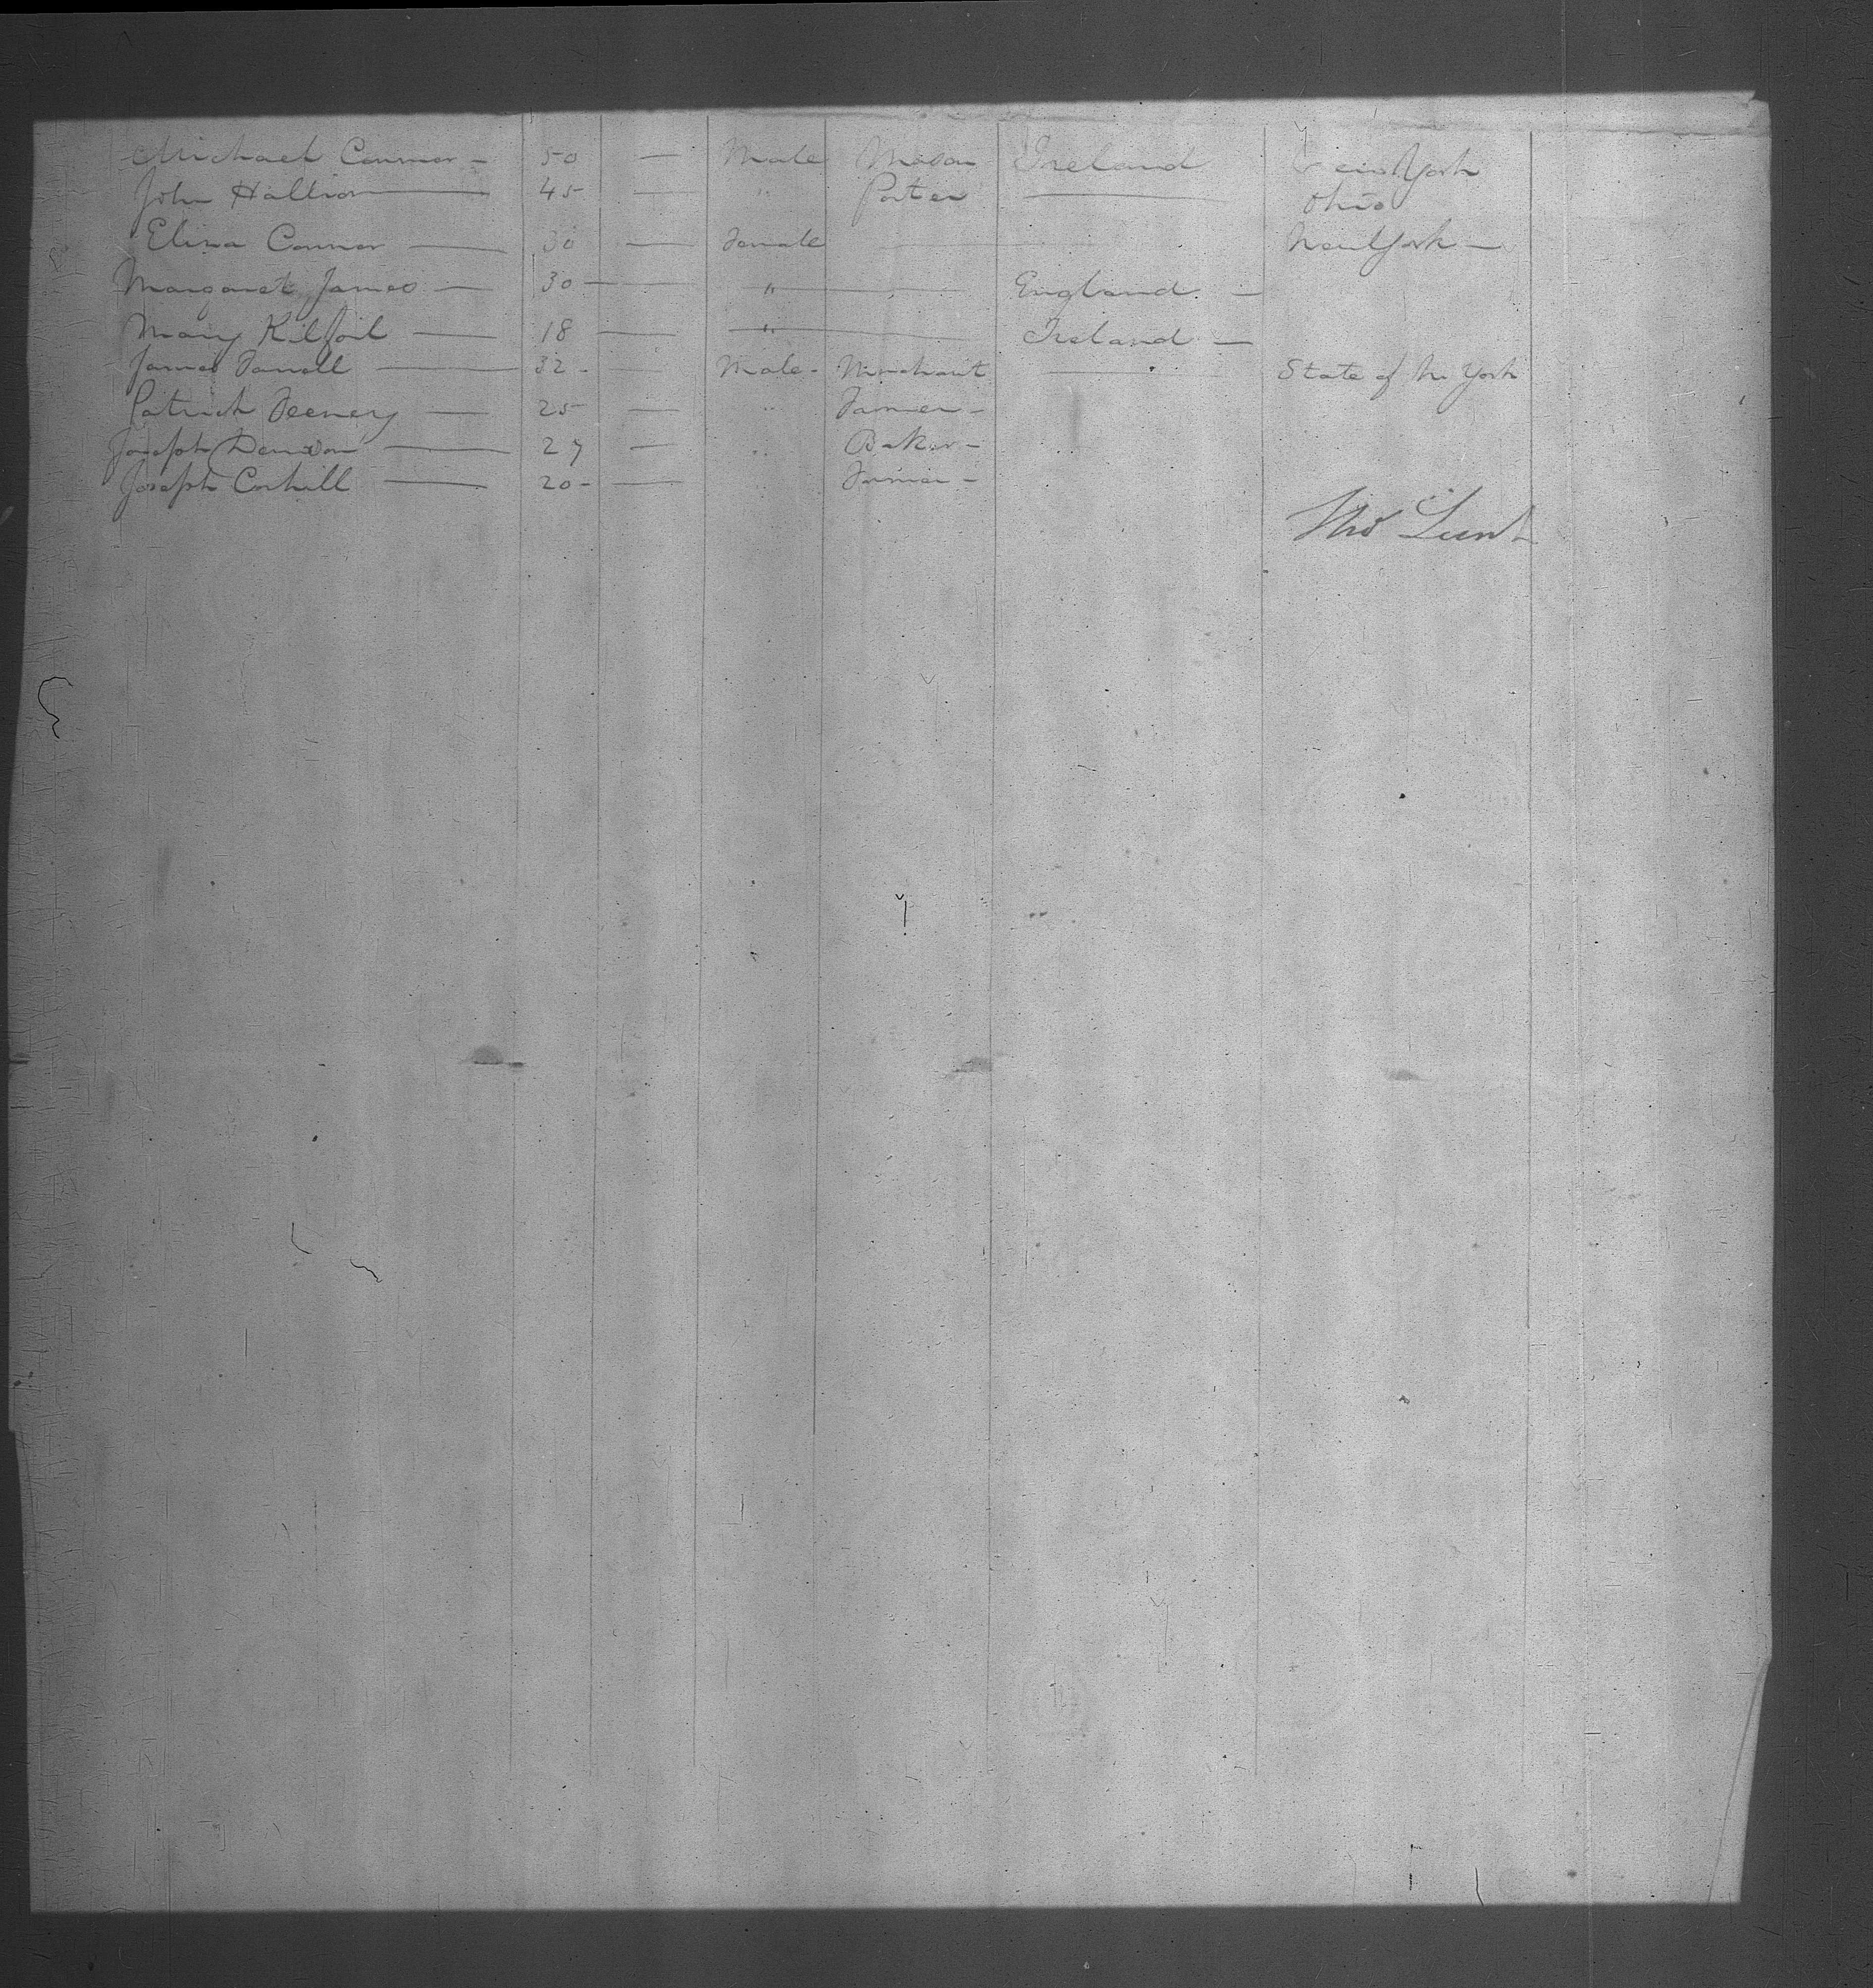 Michael Connor - 50 — Male Mason Ireland New York
John Hallion — 45 — " Porter — Ohio
Eliza Connor — 30 — Female — New York —
Margaret James — 30 — " — England —
Mary Kilfoil — 18 — " — Ireland —
James Farrell — 32 - — Male - Merchant — State of N York
Patrick Feeney — 25 — " Farmer -
Joseph — 27 — " Baker - "
Joseph Corhill — 20 - — " Farmer -
Tho Lunt